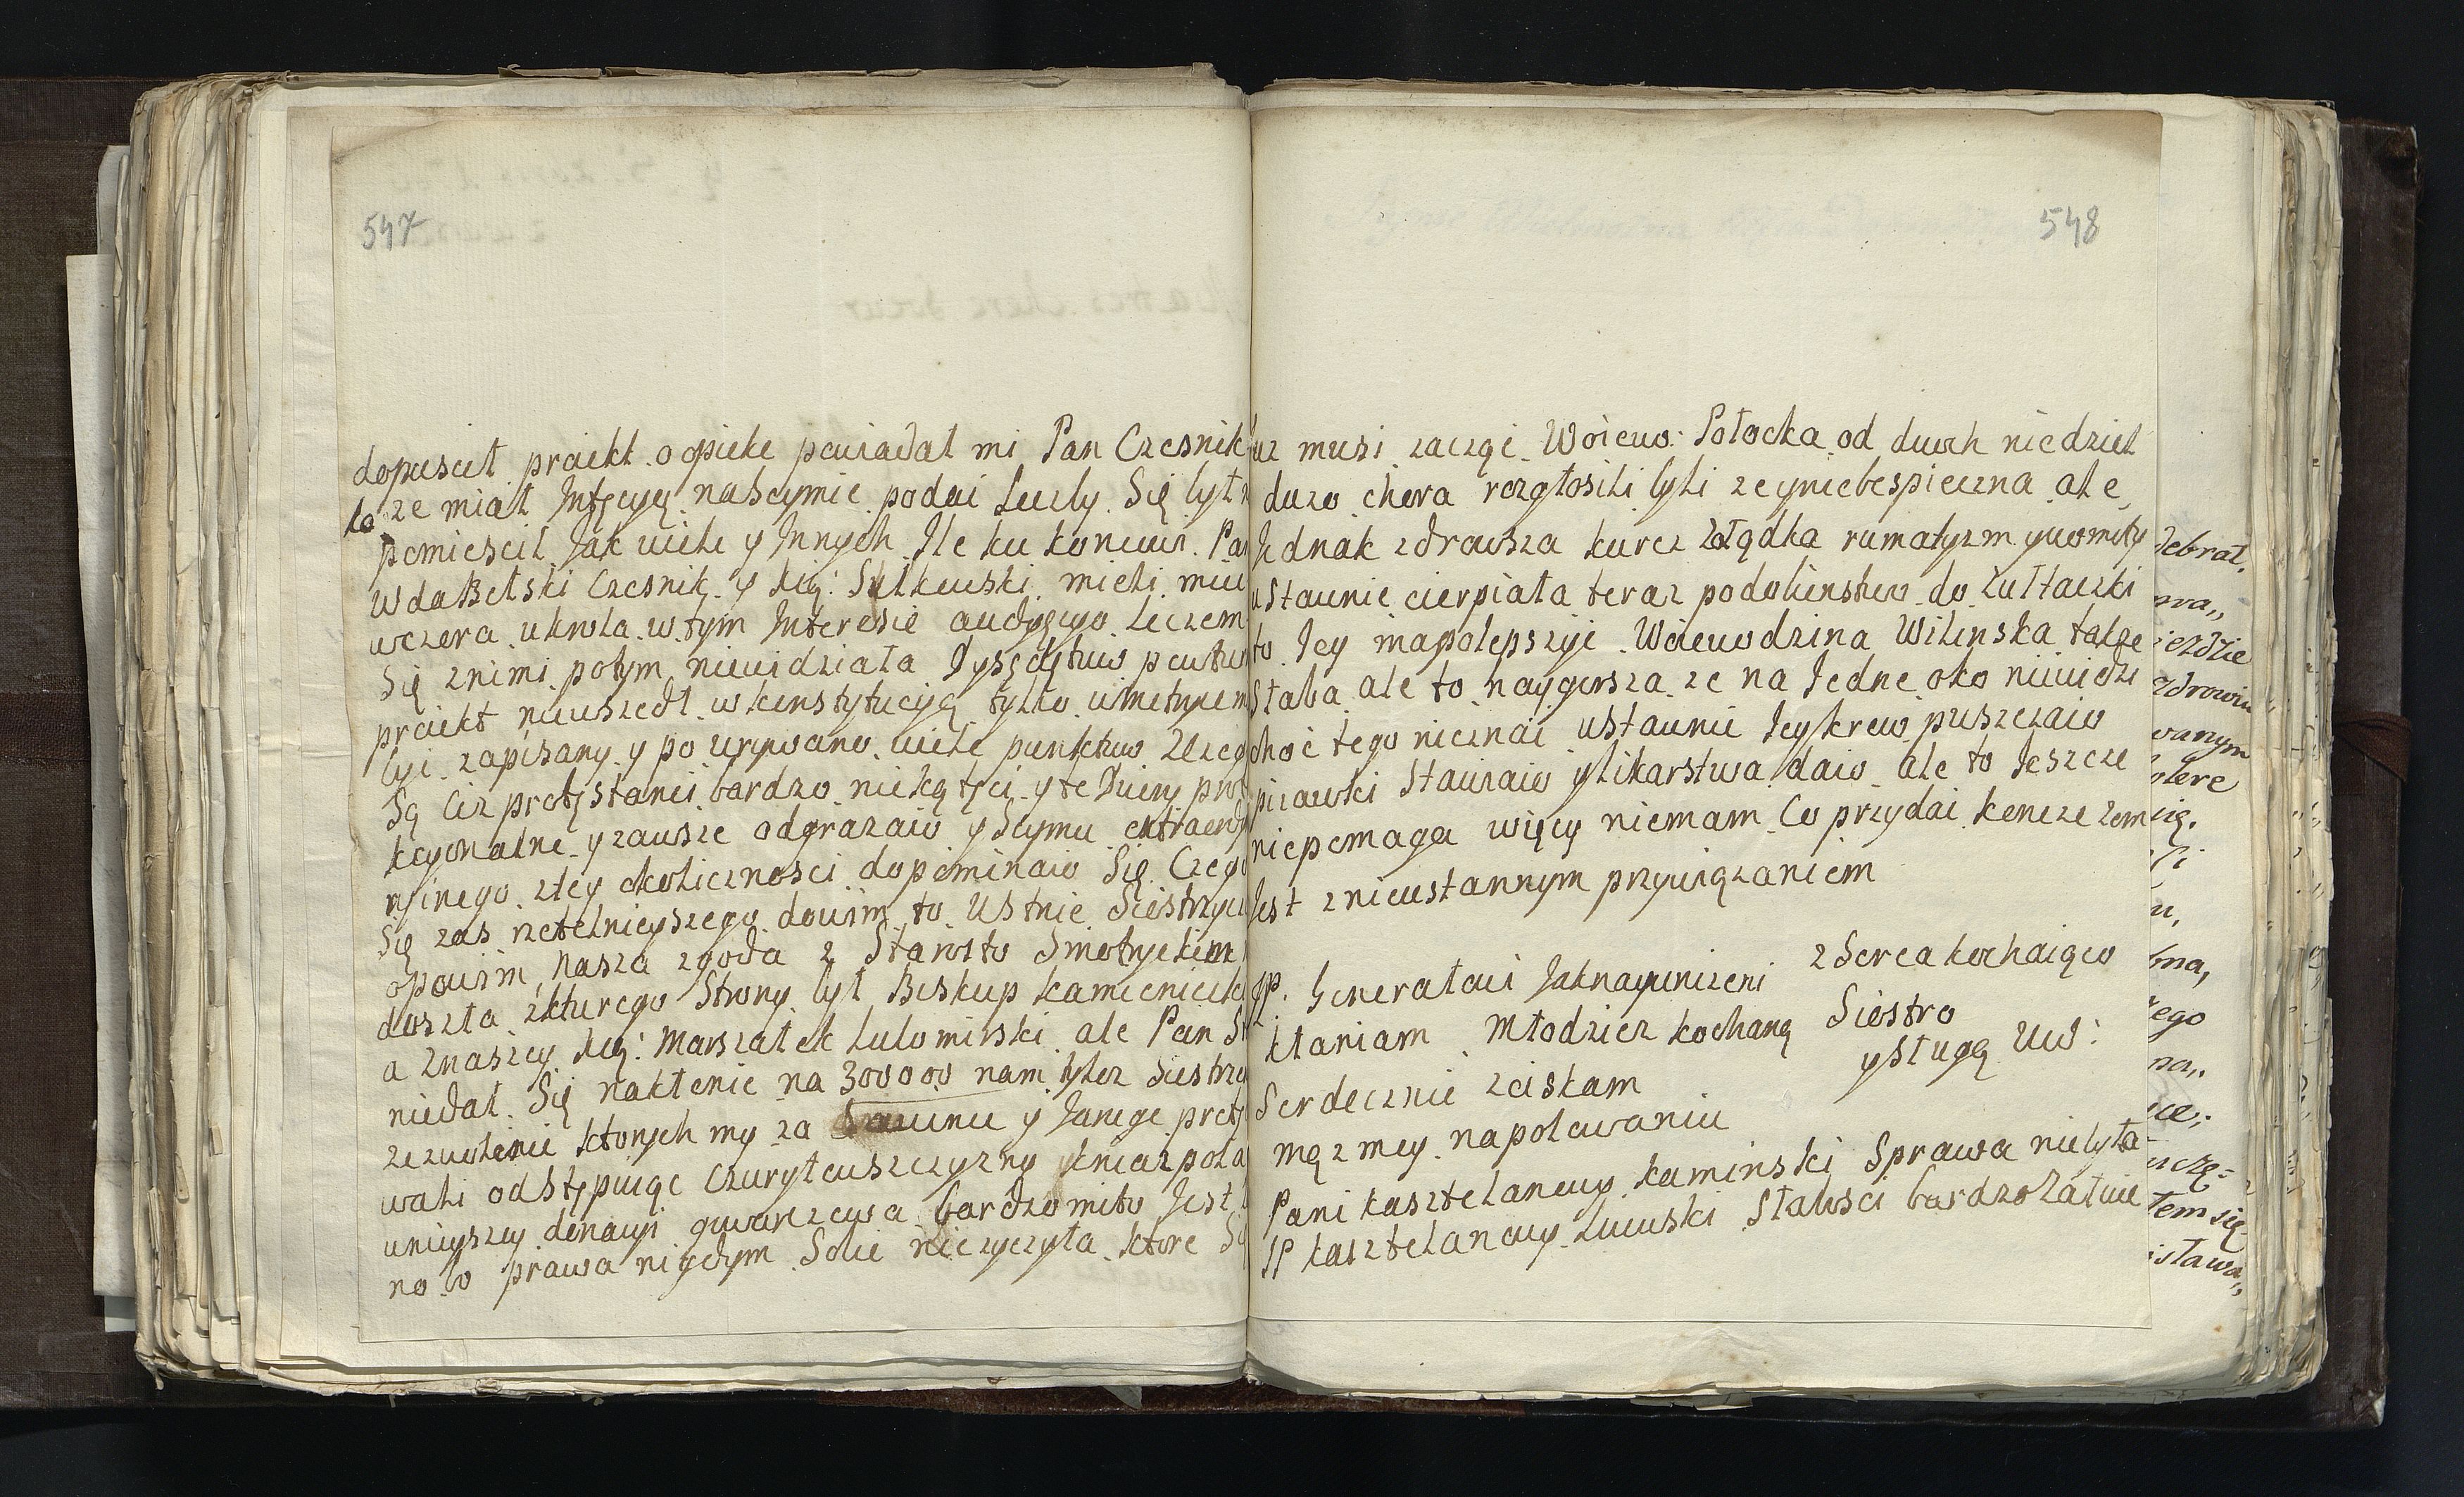 547
dopuscił proiekt o opieke powiadał mi Pan Czesnik
lo ze miał Intęcyą naseymie podai leczby Się był
pomiescił Jak wiele y Innych Ile ku koncuw. Pan
Wda Bełski Czesnik y kią: Sułkowski mieli miec
wczora u krola w tym Interesie audyęcyo leczem
Się znimi potym niewidziała Dysędętuw
proiekt niewszedł w konstytucyią tylko wmetryce
byi zapisany y po urywano wiele punktuw Zczego
Są ciz protęstanci bardzo niekątęci y te Dwiery pro
kcyonalne y zawsze odgrazaio y Seymu extraordy
ryinego ztey okolicznosci dopominaio Się Czego
Się zas rzetelnieyszego dowim to Ustnie Siestrzycy
opowim, Nasza zgoda z Starosto Smotryckim
doszła zkturego Strony był Biskup kamieniecki
a Znaszey kią: Marszałek lubomirski ale Pan St
niedał Się nakłonic na 300000 nam tylez Siestrzy
zezwolenie ktorych my za y Janege prete
wali odstępuiąc Czuryłowszczyzny y kniaz pola
umieyszey donacyi gwarczewa bardzo miło Jest
no bo prawa nigdym Sobie nie zyczyła ktore Są
548
uz musi zacząc Woiewo: Potocka od dwuch niedziel
duzo chora rozgłosili byli ze yniebespieczna ale
Jednak zdrowsza kurcz zołądka rumatyzm y womity
ustawnie cierpiała teraz podolinskiw do Zułtaczki
to Jey ma polepszyc Woiewodzina Wilinska takze
Słaba ale to naygorsza ze na Jedne oko niewidzi
choc tego nieznac ustawnie Jey krew puszczaio
piiawki stawiaio y likarstwa daio ale to Jeszcze
niepomaga więcy niemam Co przydai koncze zem
Jest znieustannym przywiązaniem
z Serca kochaiąco
Siostro
y Sługą UW:
Jp. Generałowi Jaknayunizeni
kłaniam Młodziez kochaną
Serdecznie zciskam
mąz mey na polowaniu
Pani kasztelanowy kaminski Sprawa niebyła
JP kasztelanowy Lwuwski Słabosci bardzo Załuie
debrał.
wa,,
iezdzie
zdrowiu
wanym
ktere
ię.
li
u,
lma,
rego
na,.
ue,.
uczę=
tem się
istawa,,